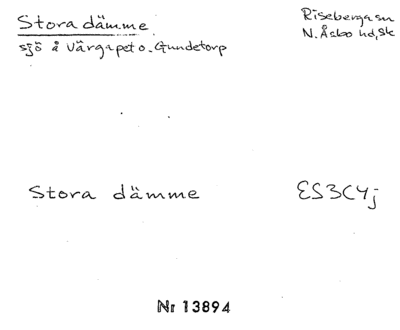 Stora dämme
Riseberga sn
sjö å Värgapet o. Gundetorp
N. Åsbo hd, Sk
Stora dämme
ES3C4j
Nr 13894